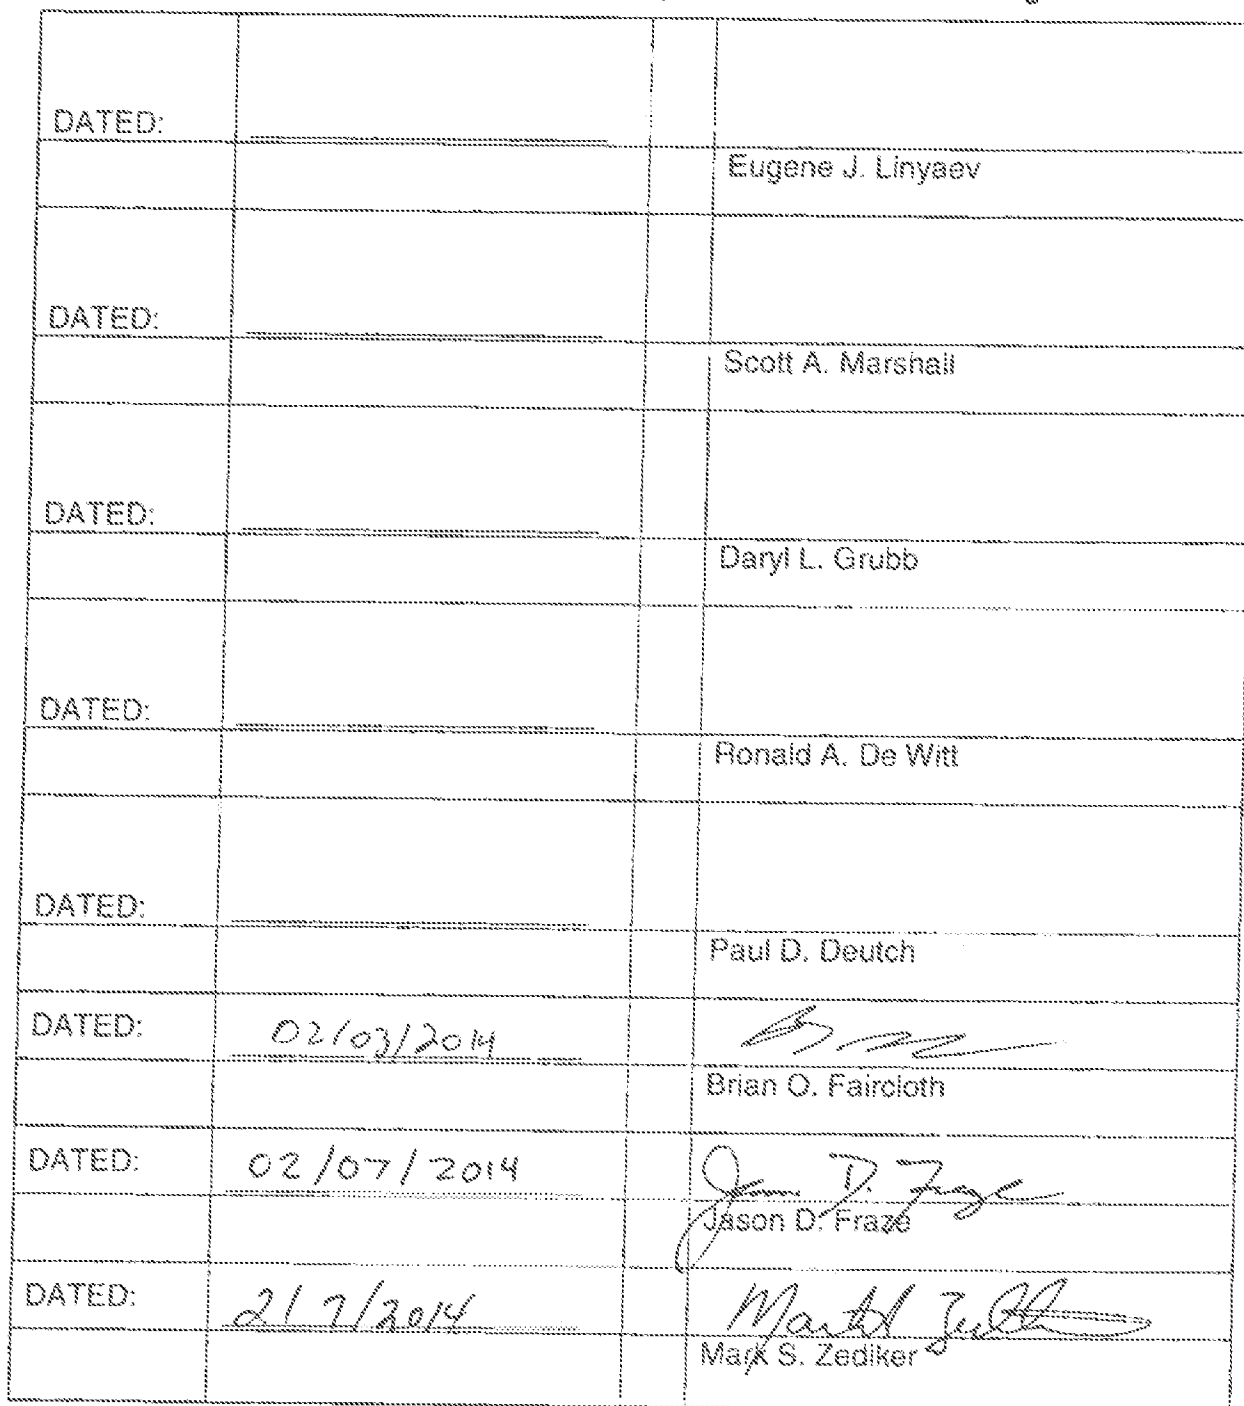 DATED:
Eugene J. Linyaev
DATED:
Scott A. Marshall
DATED:
Daryl L. Grubb
DATED:
Ronald A. De Witt
DATED:
Paul D. Deutch
DATED: 02/03/2014
Brian O. Faircloth
DATED: 02/07/2014 Jason D. Fraze
Jason D. Fraze
DATED: 2/7/2014
Mark S. Zediker